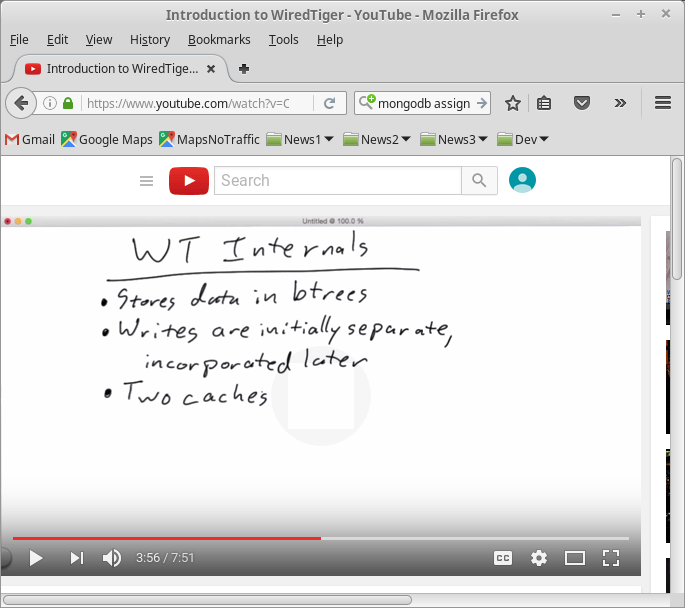 Introduction to WiredTiger - YouTube - Mozilla Firefox
File Edit View History Bookmarks Tools Help
Introduction to WiredTige...
https://www.youtube.com/watch?v=C
mongodb assign
Gmail Google Maps MapsNoTraffic News1 News2 News3 Dev
Search
Untitled @ 100.0 %
WT Internals
• Stores data in btrees
• Writes are initially separate,
incorporated later
• Two caches
3:56 / 7:51
CC